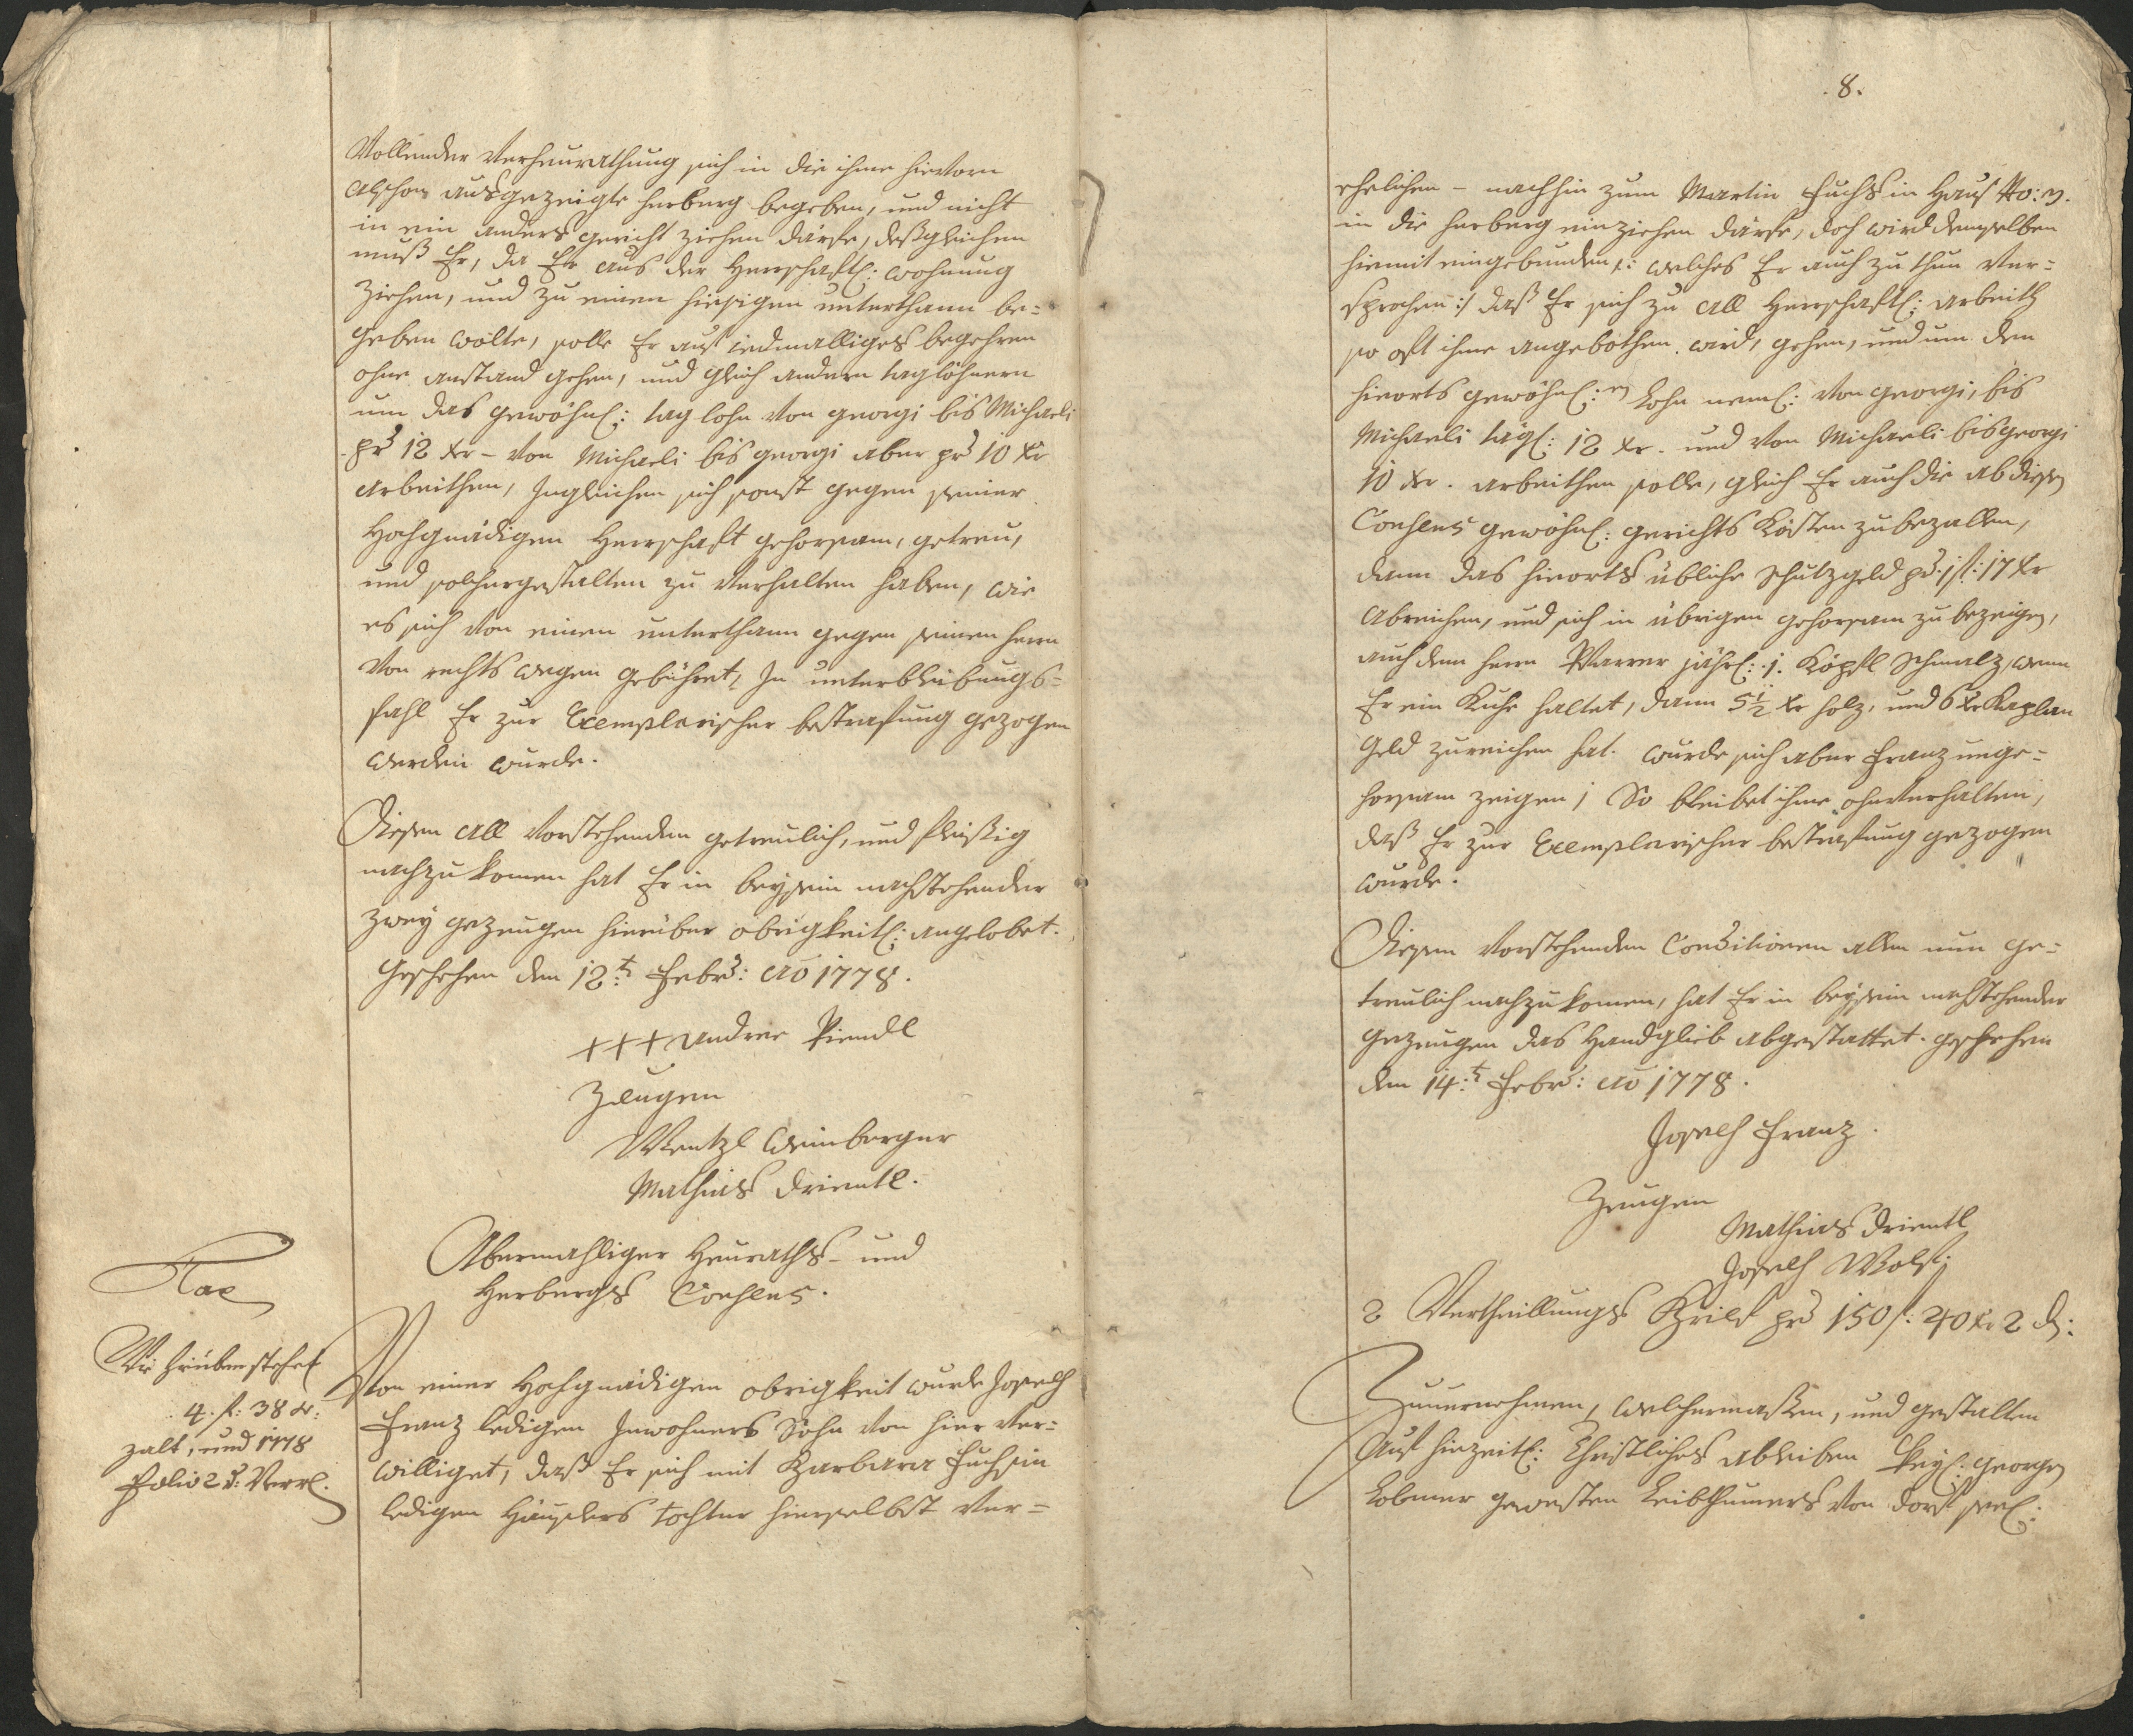 Vollender Verheurathung sich in die ihme hievorn
alschon ausgezeigte herberg begeben, und nicht
in ein anders gericht ziehen därfe, deßgleichen
muß Er, da Er aus der Herrschaftl: wohnung
ziehen, und zu einen hiesigen unterthann be=
geben wolte, solle Er auf iedmalliges begehren
ohne anstand gehen, und gleich andern taglöhnern
um das gewöhnl: tag lohn von georgi bis Michaeli
pr 12 xr – von Michaeli bis georgi aber pr 10 xr
arbeithen, Ingleichen sich sonst gegen seiner
Hochgnädigen Herrschaft gehorsam, getreu,
und solchergestalten zu verhalten haben, wie
es sich von einen unterthann gegen seinen herrn
von rechts wegen gebühret, In unterbleibungs=
fahl Er zur Exemplarischer bestrafung gezogen
werden wurde.
Diesen all vorstehenden getreulich, und fleißig
nachzukomen hat Er in beysein nachstehender
zwey gezeugen hierüber obrigkeitl: angelobet.
Geschehen den 12t Febr: Ao 1778.
+++ Andree Piendl
Zeugen
Wentzl Weinberger
Mathias Drientl.
Abermahliger Heuraths- und
Herbergs Consens.
Tax
4. f: 38 xr:
zalt, und 1778
Folio 2
Von einer Hochgnädigen obrigkeit wurde Joseph
Franz ledigen Inwohners Sohn von hier ver=
williget, daß Er sich mit Barbara Fuchsin
ledigen Häuslers tochter hierselbst ver=
8.
ehelichen – nachhin zum Martin Fuchs in Haus No: 3.
in die herberg einziehen därfe, doch wird demselben
hiemit eingebunden /: welches Er auch zu thun ver=
sprochen :/ daß Er sich zu all Herrschaftl: arbeith
so oft ihme angebothen wird, gehen, und um den
hierorts gewöhnl:en Lohn neml: von georgi, bis
Michaeli tägl: 12 xr. und von Michaeli bis georgi
10 xr. arbeithen solle, gleich Er auch die ab diesen
Consens gewöhnl: gerichts Kösten zu bezallen,
dann das hierorts übliche schutzgeld pr. 1 f: 17 xr
abreichen, und sich in übrigen gehorsam zu bezeigen,
auch dem herrn Pfarrer jährl: 1. Köpfl Schmalz, wenn
Er ein Kuhe haltet, dann 5½ xr holz, und 6 xr Kaplan
Geld zureichen hat. wurde sich aber Franz unge=
horsam zeigen, So bleibet ihme ohnverhalten,
daß Er zur Exemplarischer bestrafung gezogen
wurde.
Diesen vorstehenden Conditionen allen nun ge=
treulich nachzukomen, hat Er in beysein nachstehender
gezeugen das Handglieb abgestattet. geschehen
den 14:t Febr: Ao 1778.
Joseph Franz.
Zeugen
Mathias Drientl
Joseph Wolf.
2 Vertheillungs Brief pr 150 f: 40 xr 2 d:
Zuvernehmen, welchermaßen, und gestalten
Auf hinzeitl: Christliches ableiben georgen
Lobmer gewesten Leibthumers von Dorf seel: